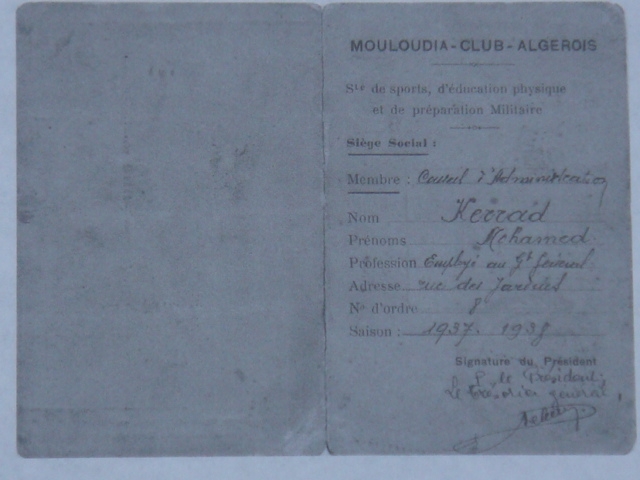 MOULOUDIA-CLUB-ALGEROIS
Sté de sports, d'éducation physique
et de préparation Militaire
Siège Social :
Membre : Conseil d'Administration
Nom Kerrad
Prénoms Mohamed
Profession Employé au Gt Général
Adresse rue des Jardins
No d'ordre 8
Saison : 1937. 1938
Signature du Président
P. le Président.
Le Trésorier général,